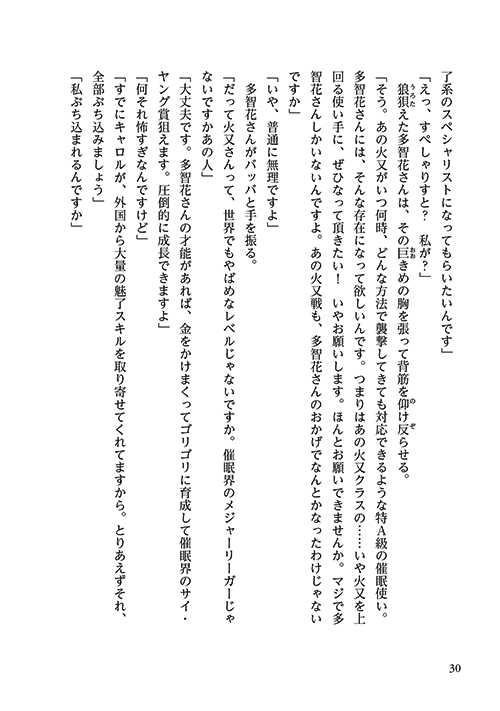 了系のスペシャリストになってもらいたいんです」
「えっ、すぺしゃりすと？　私が？」
　狼狽えた多智花さんは、その巨きめの胸を張って背筋を仰け反らせる。
「そう。あの火又がいつ何時、どんな方法で襲撃してきても対応できるような特Ａ級の催眠使い。
多智花さんには、そんな存在になって欲しいんです。つまりはあの火又クラスの……いや火又を上
回る使い手に、ぜひなって頂きたい！　いやお願いします。ほんとお願いできませんか。マジで多
智花さんしかいないんですよ。あの火又戦も、多智花さんのおかげでなんとかなったわけじゃない
ですか」
「いや、普通に無理ですよ」
　多智花さんがバッバと手を振る。
「だって火又さんって、世界でもやばめなレベルじゃないですか。催眠界のメジャーリーガーじゃ
ないですかあの人」
「大丈夫です。多智花さんの才能があれば、金をかけまくってゴリゴリに育成して催眠界のサイ・
ヤング賞狙えます。圧倒的に成長できますよ」
「何それ怖すぎなんですけど」
「すでにキャロルが、外国から大量の魅了スキルを取り寄せてくれてますから。とりあえずそれ、
全部ぶち込みましょう」
「私ぶち込まれるんですか」
30